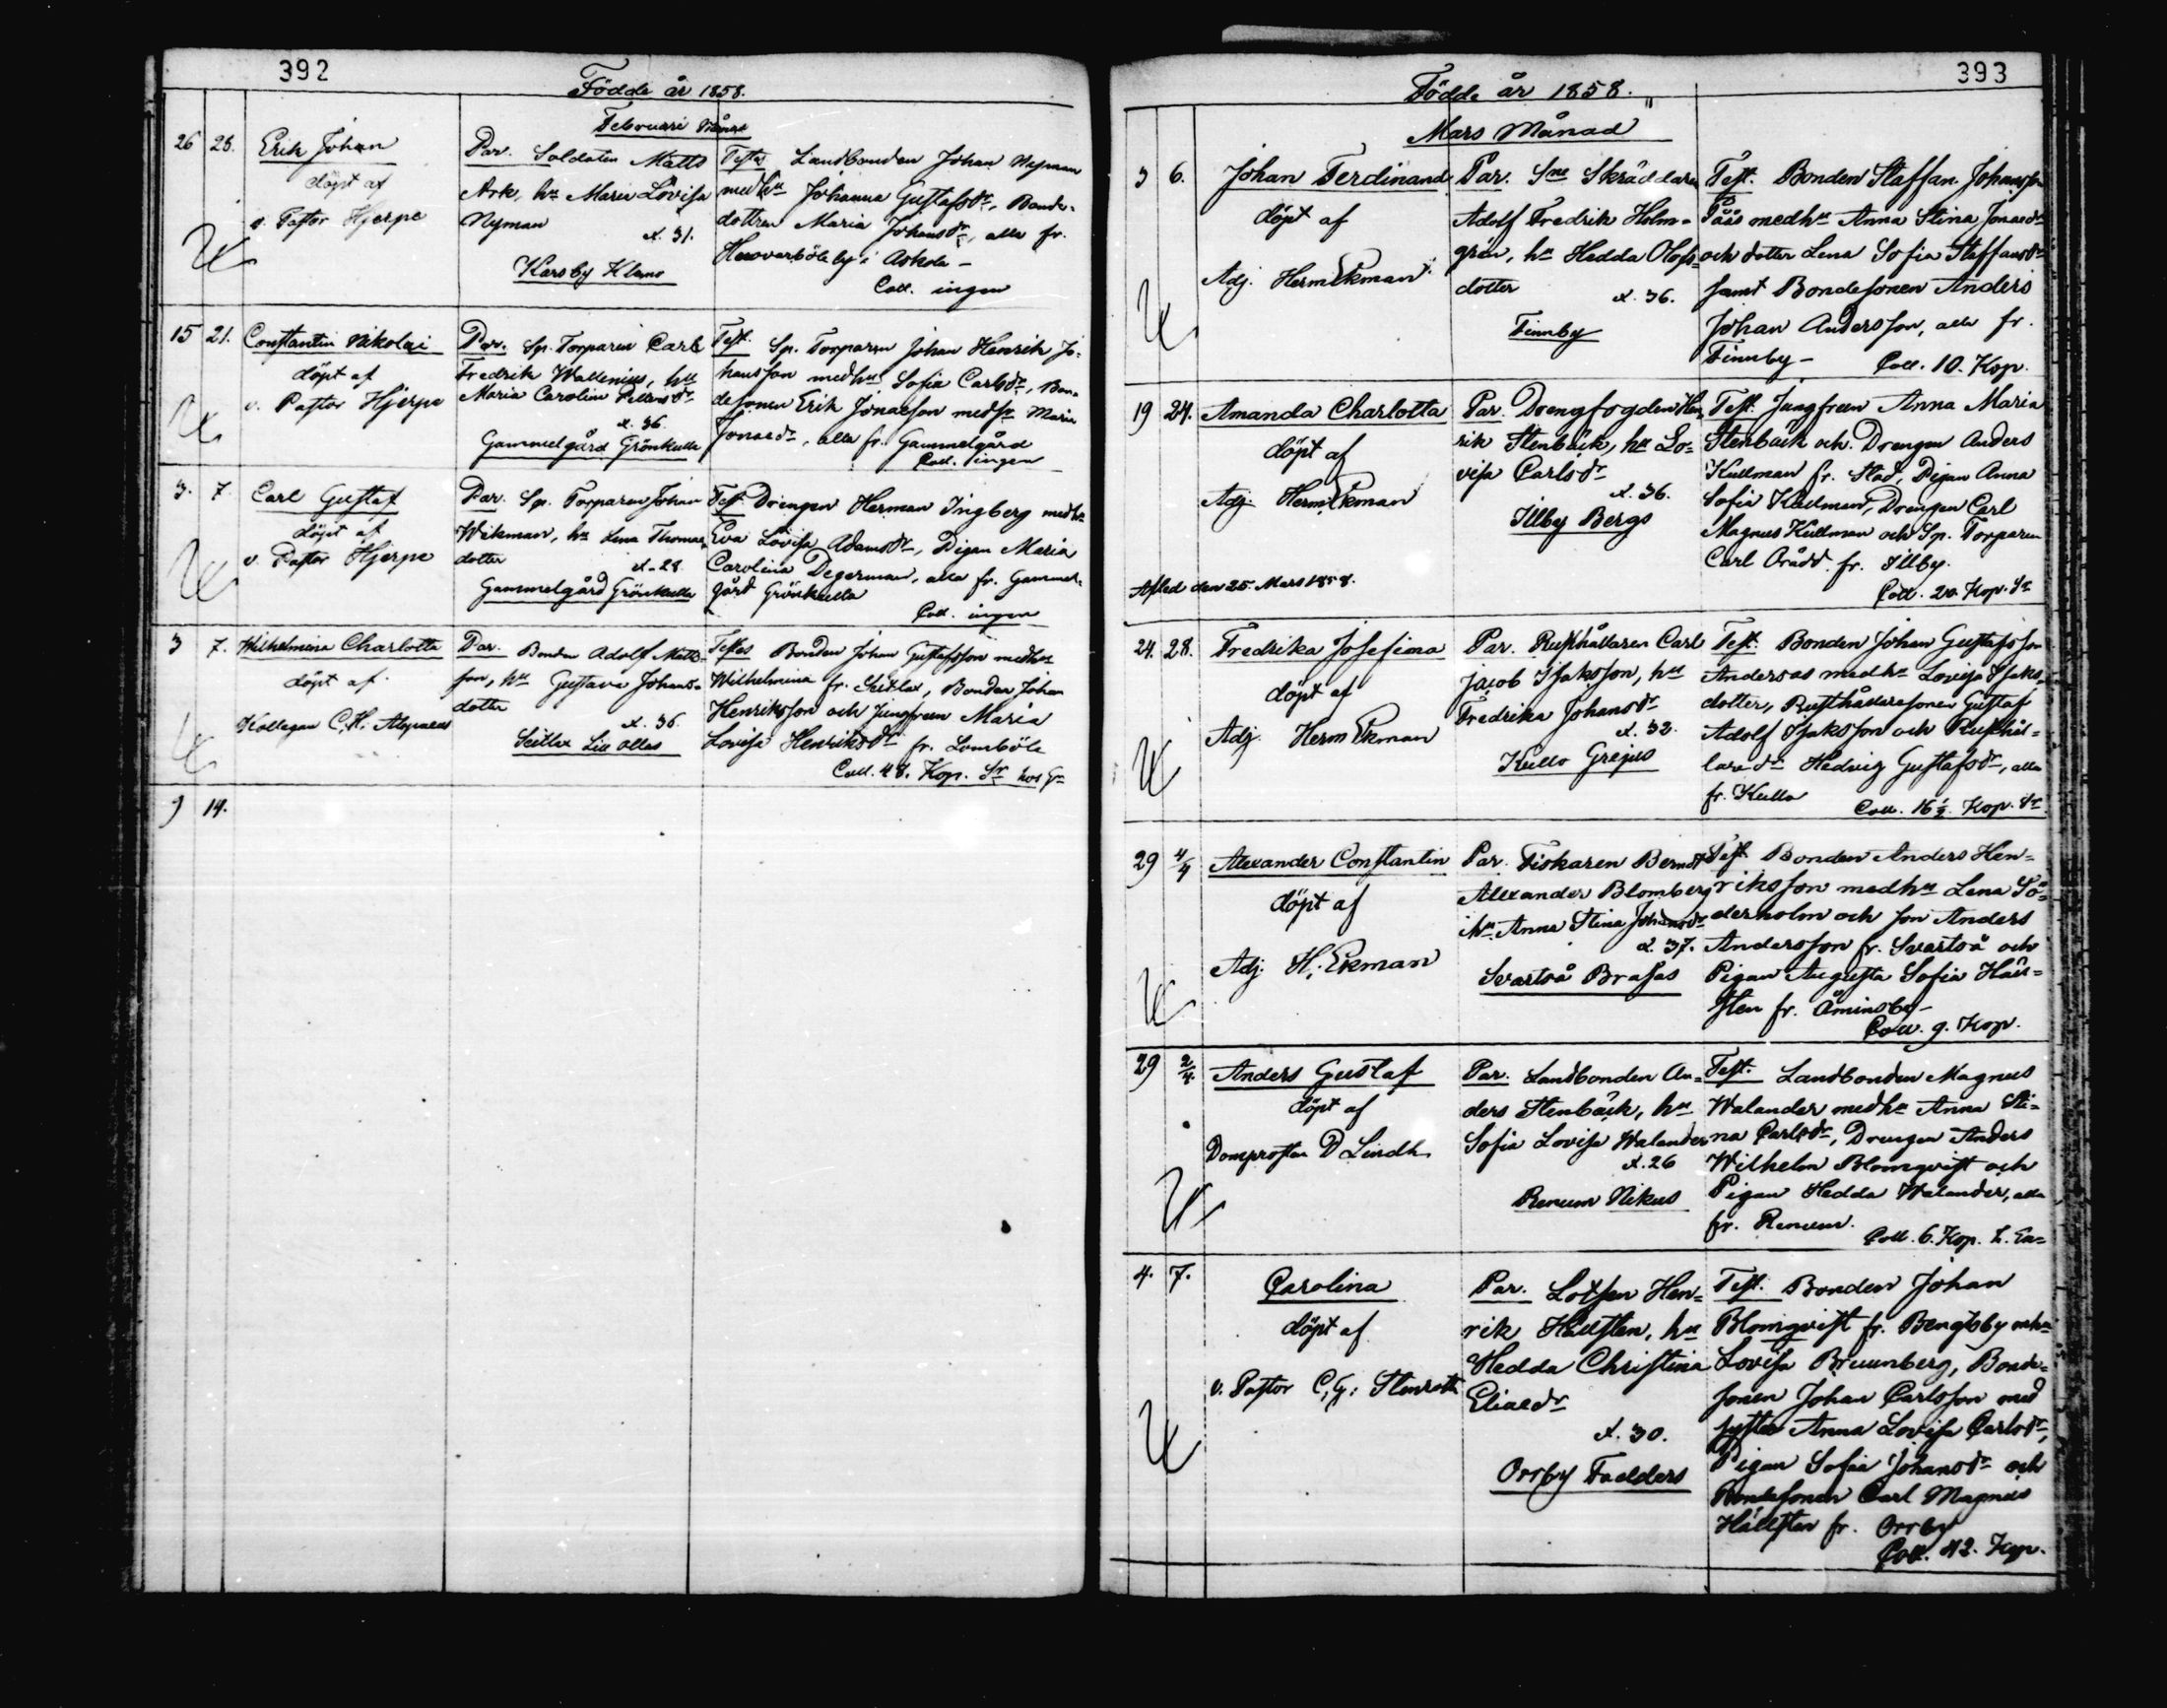 392
Födde år 1858.
Februari Månad
26 28. Erik Johan
döpt af
v. Pastor Hjerpe
Par. Soldaten Matts
Ark, hu Maria Lovisa
Nyman
æ. 31.
Karsby Klams
Testes Landbonden Johan Nyman
med hu Johanna Gustafsdr, Bonde-
dottren Maria Johansdr, alla fr.
by i Askola -
Coll. ingen
15 21. Constantin Nikolai
döpt af
v. Pastor Hjerpe
Par. Sp. Torparen Carl
Fredrik Wallenius, hu
Maria Carolina
æ. 36.
Gammelgård Grönkulla
Test. Sp. Torparen Johan Henrik Jo-
hansson med hu Sofia Carlsdr, Bon-
desonen Erik Jonasson med Maria
Jonasdr, alla fr. Gammelgård
Coll. ingen
3. 7. Carl Gustaf
döpt af
v. Pastor Hjerpe
Par. Sp. Torparen Johan
Wikman, hu Lena Thomas-
dotter
æ. 28.
Gammelgård Grönkulla
Test. Drengen Herman Ingberg med hu
Eva Lovisa Adamsdr, Pigan Maria
Carolina Degerman, alla fr. Gammel-
gård Grönkulla
Coll. ingen
3 7. Wilhelmina Charlotta
döpt af
Kollegan C. H. Alopaeus
Par. Bonden Adolf Matts-
son, hu Gustava Johans-
dotter
æ. 36.
Seitlax Lill Ollas
Testes Bonden Johan Gustafsson med hu
Wilhelmina fr. Seitlax, Bonden Johan
Henriksson och Jungfrun Maria
Lovisa Henriksdr fr. Lomböle
Coll. 48. Kop. Sr
9 14.
393
Födde år 1858.
Mars Månad
3 6. Johan Ferdinand
döpt af
Adj. Herm Ekman
Par. Sne Skräddaren
Adolf Fredrik Holm-
gren, hu Hedda Olofs-
dotter
æ. 36.
Finnby
Test. Bonden Staffan Johansson
med hu Anna Stina Jonasdr
och dotter Lena Sofia Staffansdr
samt Bondesonen Anders
Johan Andersson, alla fr.
Finnby -
Coll. 10. Kop.
19 24. Amanda Charlotta
döpt af
Adj. Herm Ekman
Afled den 25. Mars 1858.
Par. Drengfogden Hen-
rik Stenbäck, hu Lo-
visa Carlsdr
æ. 36.
Illby Bergs
Test. Jungfrun Anna Maria
Stenbäck och Drengen Anders
Kullman fr. Stad, Pigan Anna
Sofia Kullman, Drengen Carl
Magnus Kullman och Sp. Torparen
Carl fr. Illby.
Coll. 20. Kop. Sr
24. 28. Fredrika Josefina
döpt af
Adj. Herm Ekman
Par. Rusthållaren Carl
Jacob Isaksson, hu
Fredrika Johansdr
æ. 32.
Kullo Grejus
Test. Bonden Johan Gustafsson
Andersas med hu Lovisa Isaks-
dotter, Rusthållaresonen Gustaf
Adolf Isaksson och Rusthål-
lare dr Hedvig Gustafsdr, alla
fr. Kullo
Coll. 16½. Kop. Sr
29 4/4 Alexander Constantin
döpt af
Adj. H. Ekman
Par. Fiskaren Berndt
Alexander Blomberg
hu Anna Stina Johansdr
æ. 37.
Svartså Brasas
Test. Bonden Anders Hen-
riksson med hu Lena Sö-
derholm och son Anders
Andersson fr. Svartså och
Pigan Augusta Sofia Häll-
sten fr. Åminsby -
Coll. 9. Kop.
29 2/4 Anders Gustaf
döpt af
Domprosten D Lindh
Par. Landbonden An-
ders Stenbäck, hu
Sofia Lovisa Walander
æ. 26
Renum Nikus
Test. Landbonden Magnus
Walander med hu Anna Sti-
na Carlsdr, Drengen Anders
Wilhelm Blomqvist och
Pigan Hedda Walander, alla
fr. Renum.
Coll. 6. Kop.
4. 7. Carolina
döpt af
v. Pastor C. G. Stenroth
Par. Lotsen Hen-
rik Hällsten, hu
Hedda Christina
Eliædr
æ. 30.
Orrby Faelders
Test. Bonden Johan
Blomqvist fr. Bengtsby
Lovisa Bruunberg, Bonde-
sonen Johan Carlsson med
syster Anna Lovisa Carlsdr,
Pigan Sofia Johansdr och
Bondesonen Carl Magnus
Hällsten fr. Orrby
Coll. 42. Kop.